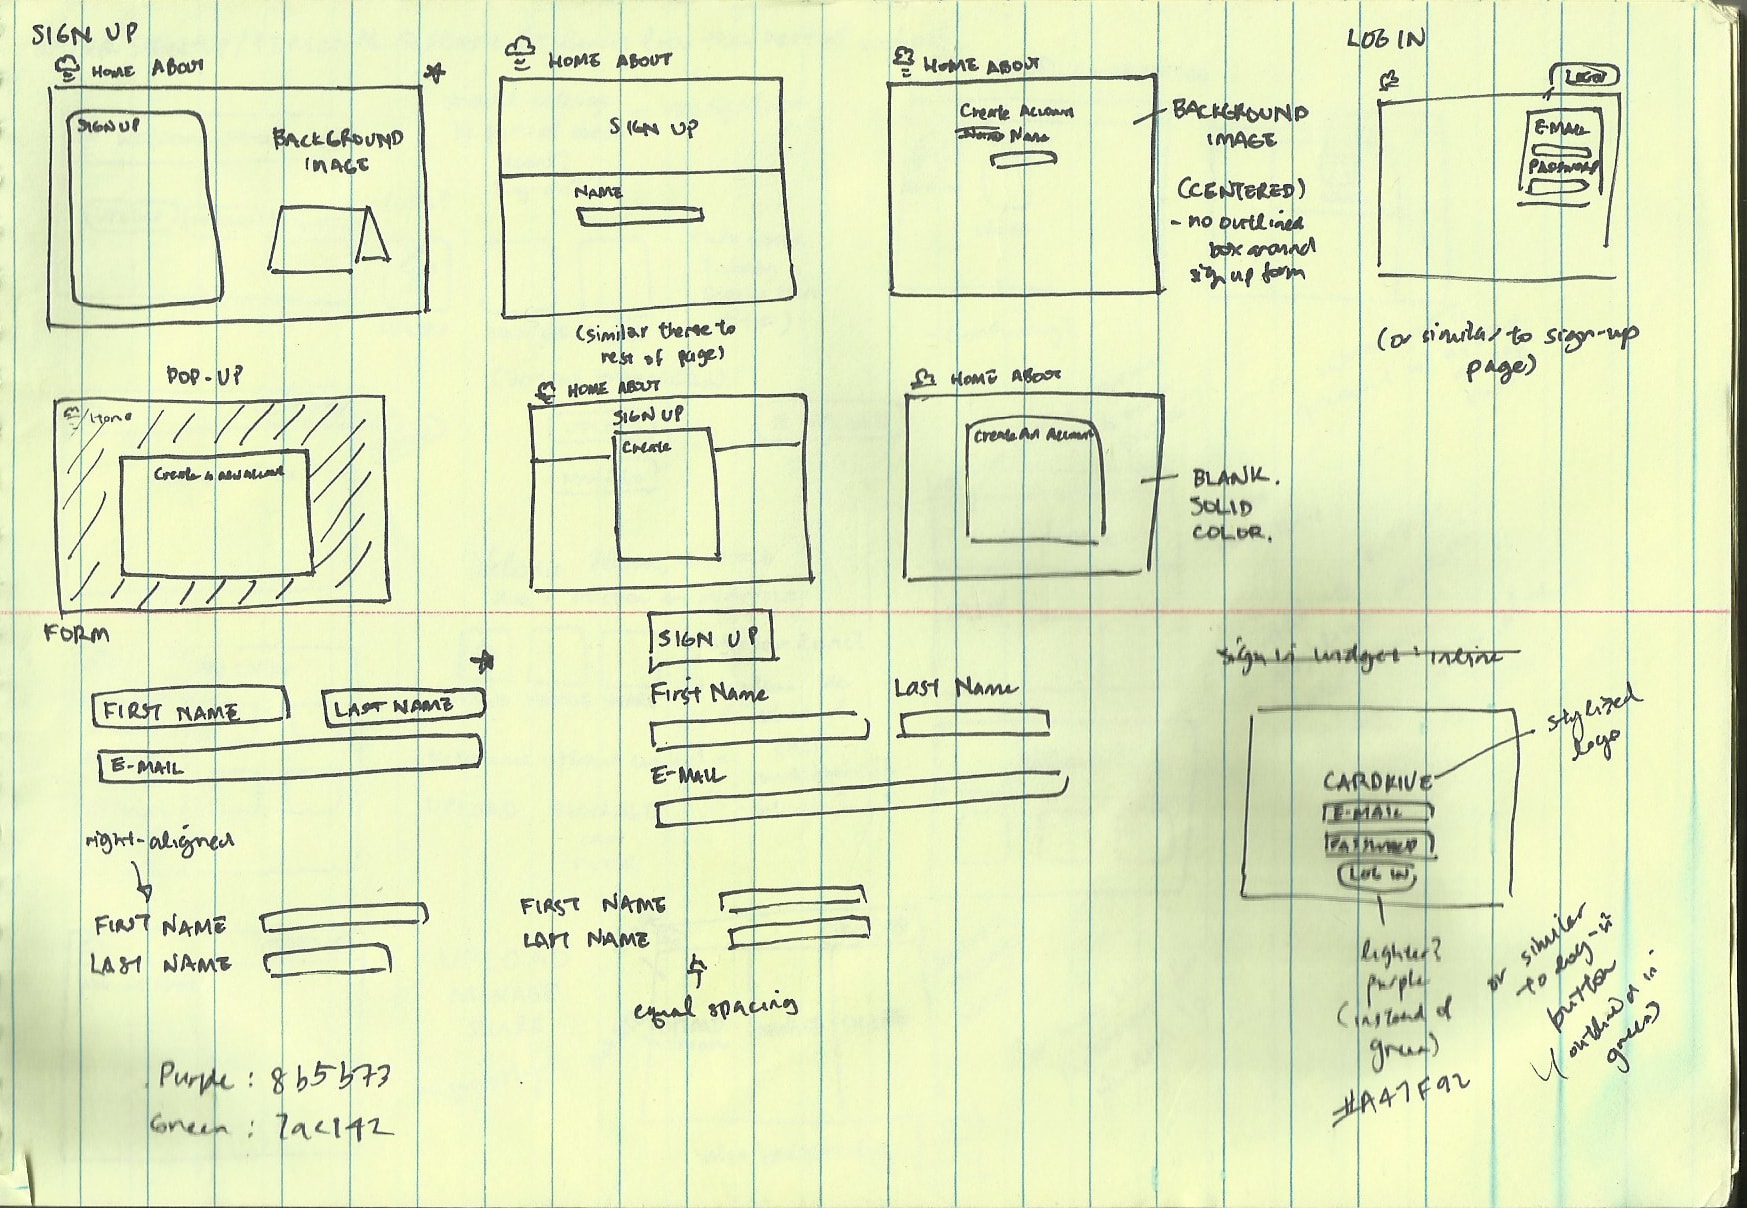 SIGN UP
HOME ABOUT
SIGN UP
BACKGROUND
IMAGE
HOME ABOUT
SIGN UP
NAME
(similar theme to
rest of page)
HOME ABOUT
Create Account
Name
BACKGROUND
IMAGE
(CENTERED)
- no outlined
box around
sign up form
LOG IN
LOGIN
E-MAIL
PASSWORD
(or similar to sign-up
page)
POP-UP
Home
Create a new account
HOME ABOUT
SIGN UP
Create
HOME ABOUT
Create An Account
BLANK.
SOLID
COLOR.
FORM
FIRST NAME
LAST NAME
E-MAIL
SIGN UP
First Name
Last Name
E-MAIL
right-aligned
FIRST NAME
LAST NAME
FIRST NAME
LAST NAME
equal spacing
Purple: 8b5b73
Green: 7ac142
sign in widget: inline
CARDRIVE
stylized
logo
E-MAIL
PASSWORD
LOG IN
lighter?
purple
(instead of
green)
#A47F92
or similar
to log-in
button
w/ outlined in
green)